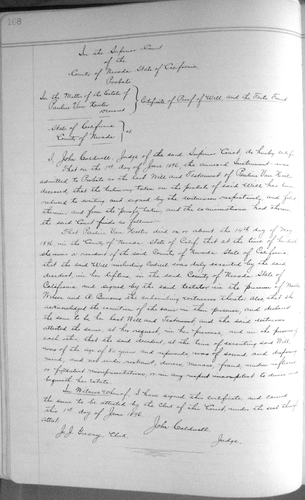 168
In the Superior Court
of the
County of Nevada State of California
Probate
In the Matter of the Estate of
Certificate of Proof of Will and the Facts Found
deceased
State of California
County of Nevada } ss
I, John Caldwell, Judge of the said Superior Court, do hereby certify
That on the 1st day of June 1896, the annexed Instrument was
admitted to Probate as the Last Will and Testament of
deceased, that the testimony taken on the probate of said Will has been
reduced to writing and signed by the witnesses respectively and filed
therein, and from the proofs taken, and the examinations had therein
the said Court finds as follows:
That died on or about the 14th day of May
1896 in the County of Nevada State of Calif that at the time of
she was a resident of the said County of Nevada State of California
that the said Will was duly executed by the said
decedent, in her lifetime in the said County of Nevada State of
California and signed by the said testator in the presence of
and the subscribing witnesses thereto. Also that she
acknowledged the execution of the same in their presence, and declared
the same to be her last Will and Testament and the said witnesses
attested the same, at her request, in her presence, and in the presence of
each other that the said decedent, at the time of executing said Will
was of the age of years and upwards, was of sound and disposing
mind, and not under restraint, duress, menace fraud undue influence
or representations, or in any respect incompetent to devise and
bequeath her estate.
In Witness Whereof, I have signed this Certificate and caused
the same to be attested by the Clerk of this Court under the seal thereof
this 1st day of June 1896.
attest
John Caldwell
Clerk
Judge.